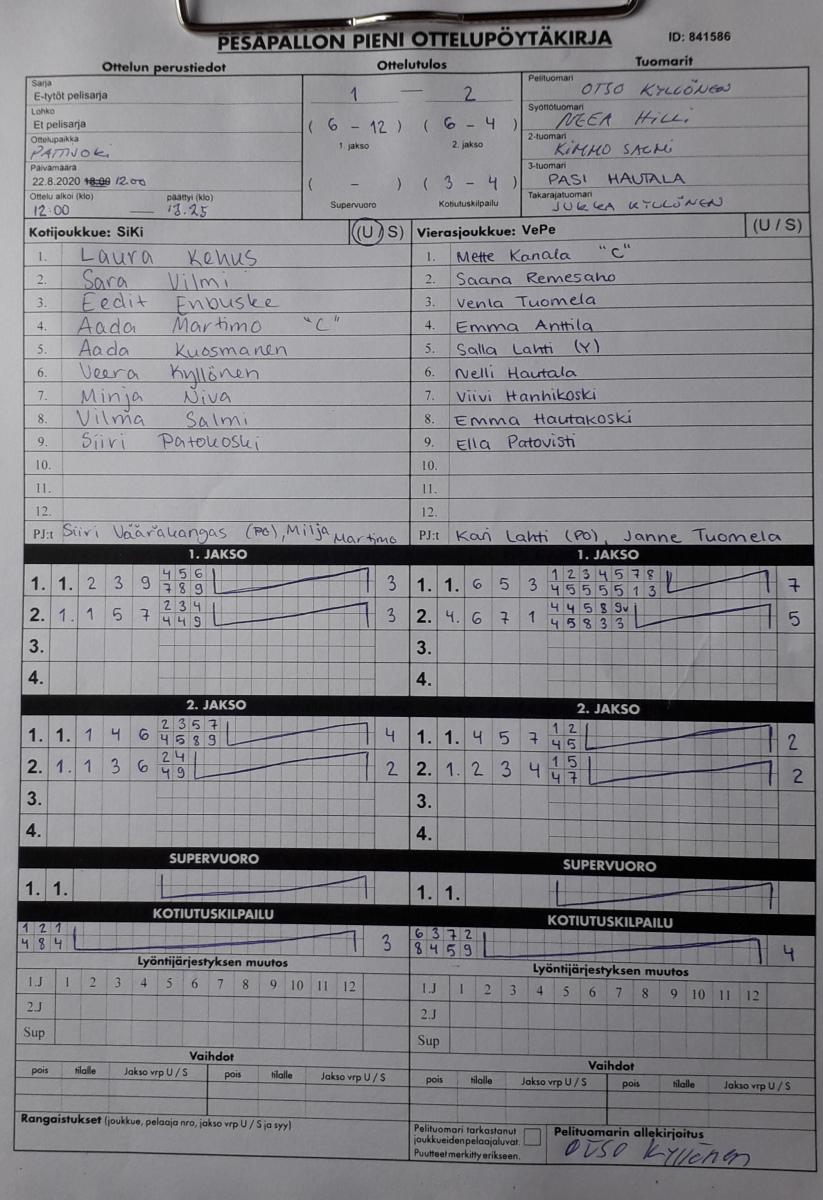 PESÄPALLON PIENI OTTELUPÖYTÄKIRJA ID: 841586
Ottelun perustiedot Ottelutulos Tuomarit
Sarja
E-tytöt pelisarja
Lohko
Ei pelisarja
Ottelupaikka
PATTIJOKI
Päivämäärä
22.8.2020 18:00 12.00
Ottelu alkoi (klo) päättyi (klo)
12:00 — 13.25
1 — 2
( 6 - 12 ) ( 6 - 4 )
1. jakso 2. jakso
( - ) ( 3 - 4 )
Supervuoro Kotiutuskilpailu
Pelituomari
OTSO KYLLÖNEN
Syöttötuomari
NEEA HILLI
2-tuomari
KIMMO SALMI
3-tuomari
PASI HAUTALA
Takarajatuomari
JUKKA KYLLÖNEN
Kotijoukkue: SiKi (U / S)
1. Laura Kehus
2. Sara Vilmi
3. Eedit Enbuske
4. Aada Martimo "C"
5. Aada Kuosmanen
6. Veera Kyllönen
7. Minja Niva
8. Vilma Salmi
9. Siiri Patokoski
10.
11.
12.
PJ:t Siiri Vääräkangas (PO), Milja Martimo
Vierasjoukkue: VePe (U / S)
1. Mette Kanala "C"
2. Saana Remesaho
3. Venla Tuomela
4. Emma Anttila
5. Salla Lahti (Y)
6. Nelli Hautala
7. Viivi Hanhikoski
8. Emma Hautakoski
9. Ella Patovisti
10.
11.
12.
PJ:t Kari Lahti (PO), Janne Tuomela
1. JAKSO
1. 1. 2 3 9 4 5 6 3
7 8 9
2. 1. 1 5 7 2 3 4 3
4 4 9
3.
4.
1. JAKSO
1. 1. 6 5 3 1 2 3 4 5 7 8 7
4 5 5 5 5 1 3
2. 4. 6 7 1 4 4 5 8 9v 5
4 5 8 3 3
3.
4.
2. JAKSO
1. 1. 1 4 6 2 3 5 7 4
4 5 8 9
2. 1. 1 3 6 2 4 2
4 9
3.
4.
2. JAKSO
1. 1. 4 5 7 1 2 2
4 5
2. 1. 2 3 4 1 5 2
4 7
3.
4.
SUPERVUORO
1. 1.
SUPERVUORO
1. 1.
KOTIUTUSKILPAILU
1 2 1 3
4 8 4
KOTIUTUSKILPAILU
6 3 7 2 4
8 4 5 9
Lyöntijärjestyksen muutos
1.J 1 2 3 4 5 6 7 8 9 10 11 12
2.J
Sup
Lyöntijärjestyksen muutos
1.J 1 2 3 4 5 6 7 8 9 10 11 12
2.J
Sup
Vaihdot
pois tilalle Jakso vrp U / S pois tilalle Jakso vrp U / S
Vaihdot
pois tilalle Jakso vrp U / S pois tilalle Jakso vrp U / S
Rangaistukset (joukkue, pelaaja nro, jakso vrp U / S ja syy)
Pelituomari tarkastanut
joukkueiden pelaajaluvat.
Puutteet merkitty erikseen.
Pelituomarin allekirjoitus
Otso Kyllönen